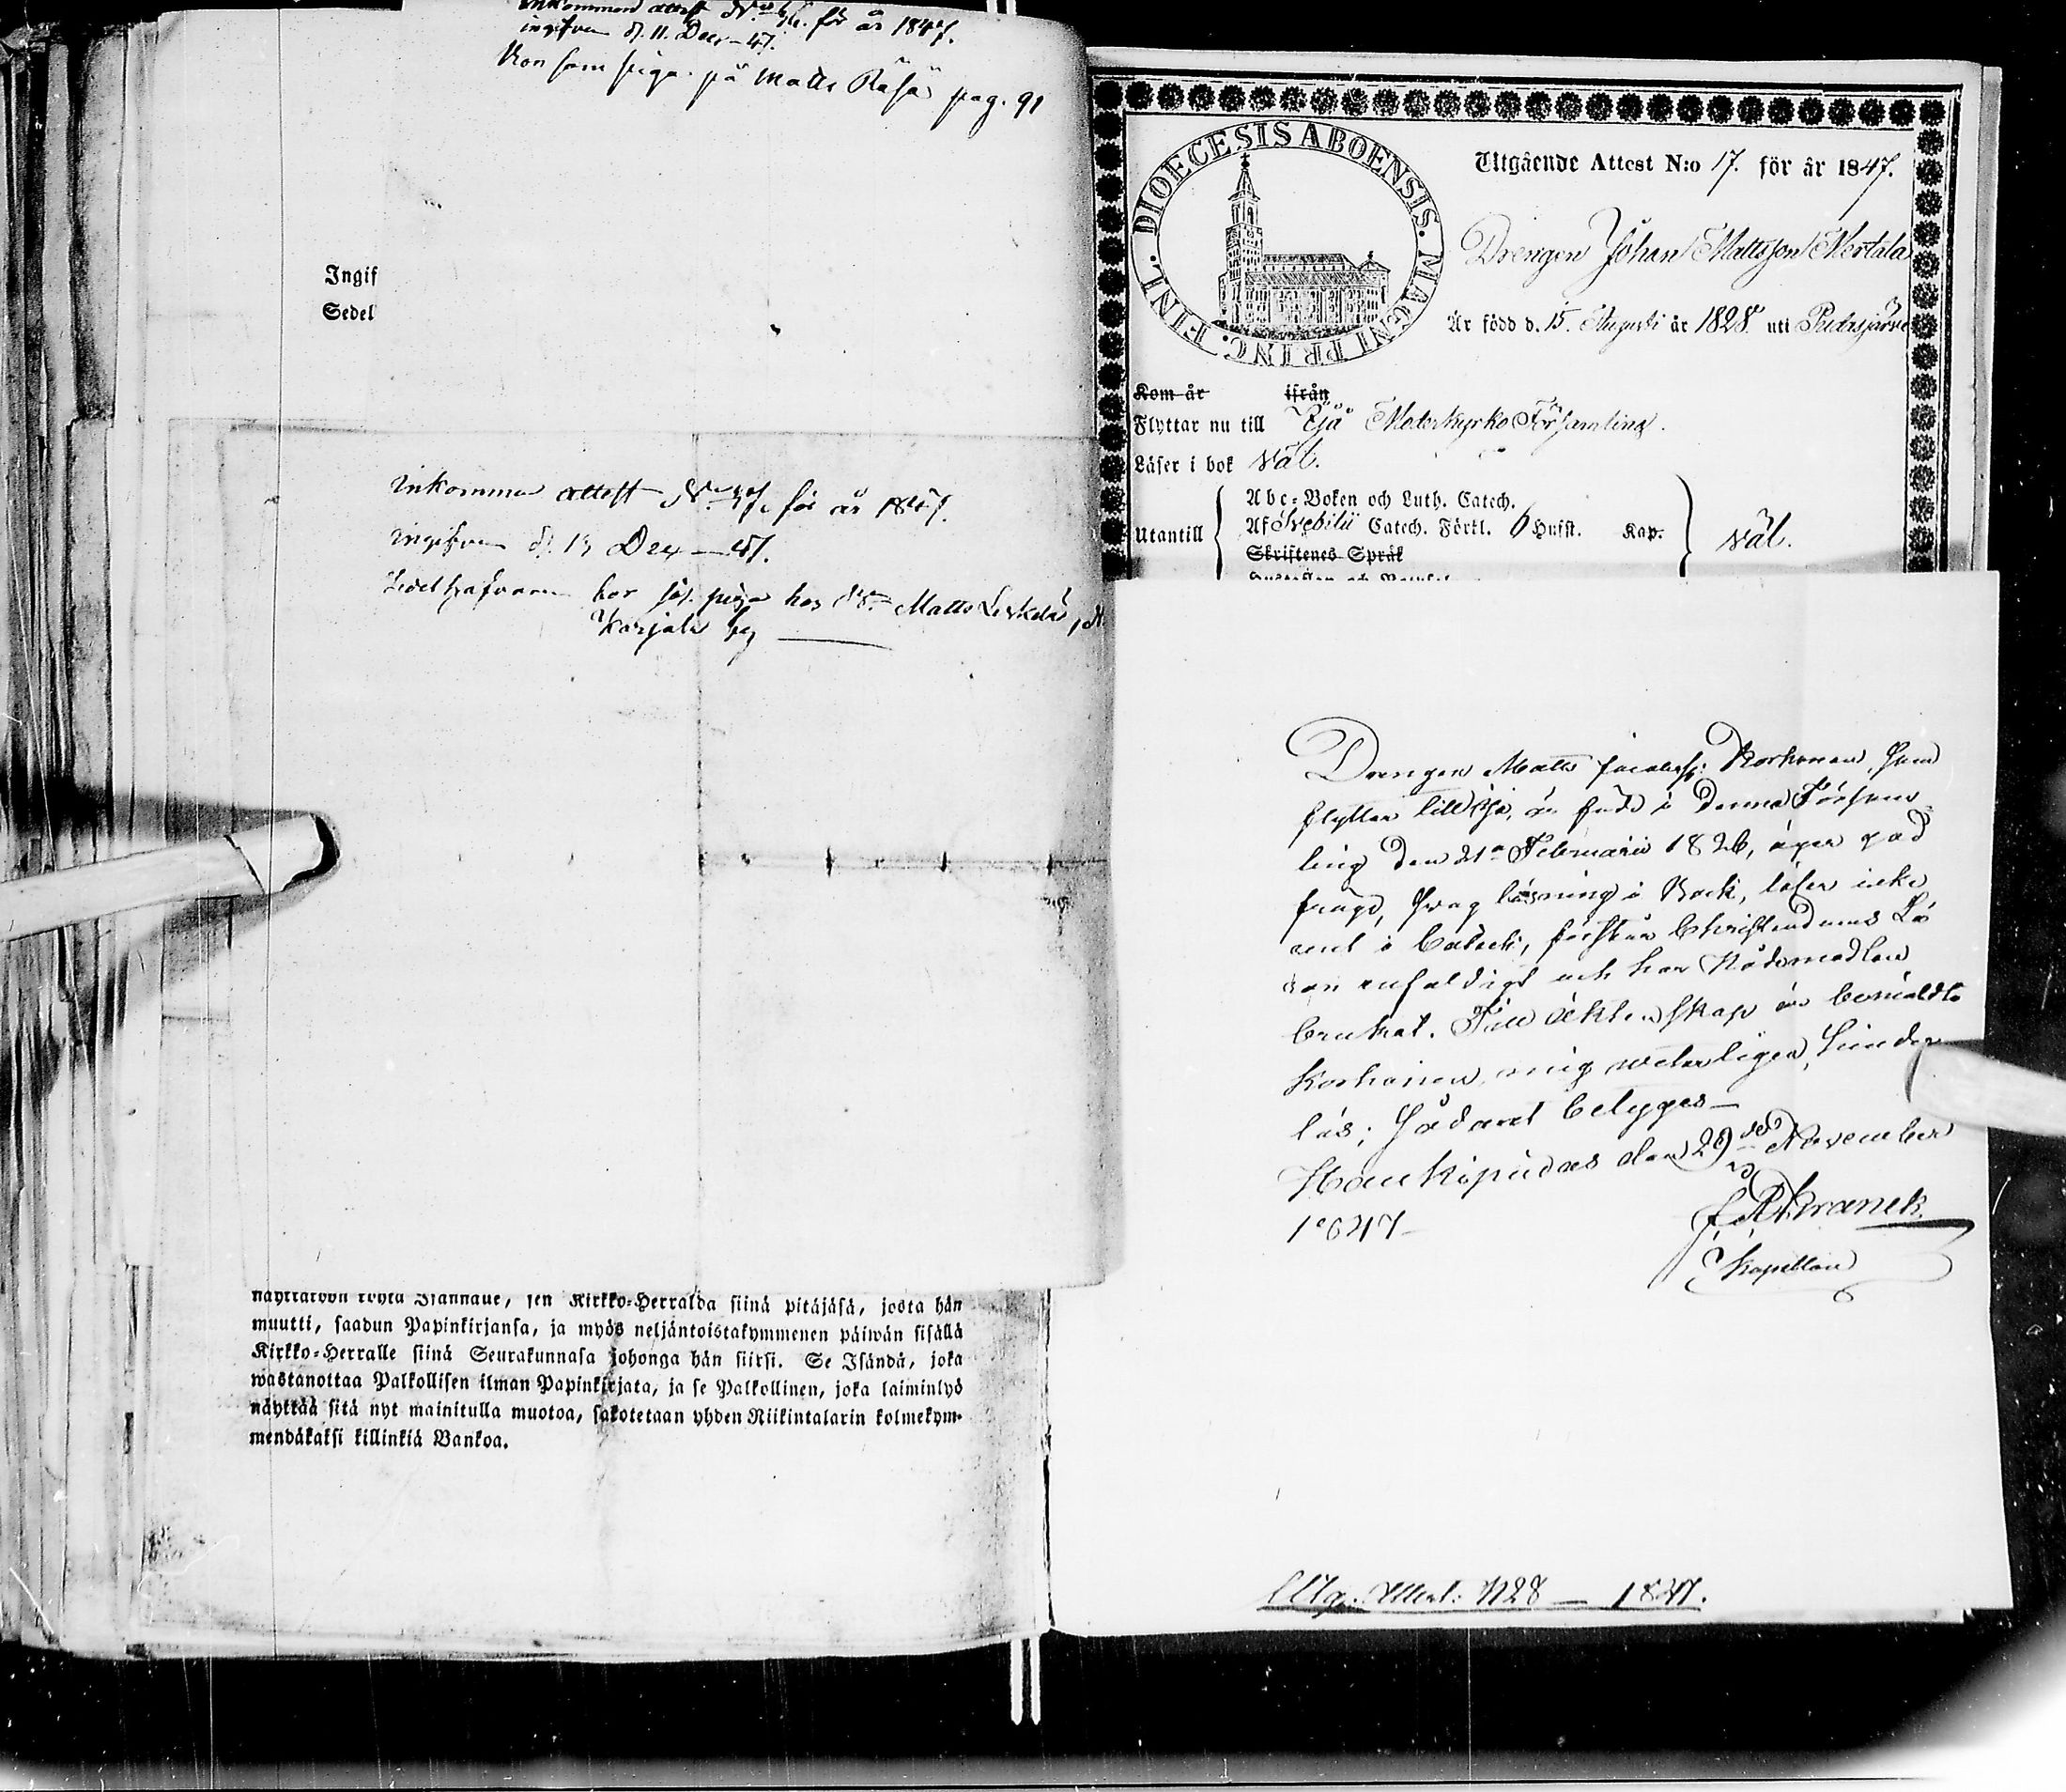 inkommen attest N:o 46. för år 1847.
ingifven d. 11. Decr - 47.
Hon som piga på Matts Räisä pag. 91
Ingif
Sedel
inkommen attest N:o 47. för år 1847.
ingifven d. 13 Dec - 47.
Sedelhafvaren bor som piga hos Matts Leskelä,
Karjala by
näyttäköön löytä Isännälle, sen Kirkko-Herralda siinä pitäjäsä, josta hän
muutti, saadun Papinkirjansa, ja myös neljäntoistakymmenen päiwän sisällä
Kirkko-Herralle siinä Seurakunnasa johonga hän siirsi. Se Isändä, joka
wastanottaa Palkollisen ilman Papinkirjata, ja se Palkollinen, joka laiminlyö
näyttää sitä nyt mainitulla muotoa, sakotetaan yhden Riikintalarin kolmekym-
mendäkaksi killinkiä Bankoa.
DIOECESIS ABOENSIS. MAGNI PRINC. FINL.
Utgående Attest N:o 17. för år 1847.
Drengen Johan Mattsson Mertala
Är född d. 15. Augusti år 1828. uti Pudasjärvi
Kom år ifrån
Flyttar nu till Ijå Moderkyrko Församling.
Läser i bok Väl.
Utantill
Abc-Boken och Luth. Catech.
Af Svebilii Catech. Förkl. 6 Hufst. Kap.
Skriftenes Språk
väl.
Drengen Matts Jacobss: Korhonen, som
flyttar till Ijå, är född i denna Försam-
ling den 21a Februarii 1826, äger god
frägd, svag läsning i Bock, läser icke
ant i Catech:, förstår Christendoms Lä
ran enfaldigt och har Nådemedlen
brukat. Till äktenskap är bemäldte
Korhonen, mig veterligen, hinder
lös; Sådant betyges—
Haukipudas den 29de November
1847—
Kranck
Kapellan
Utg. Attest: N28 — 1847.